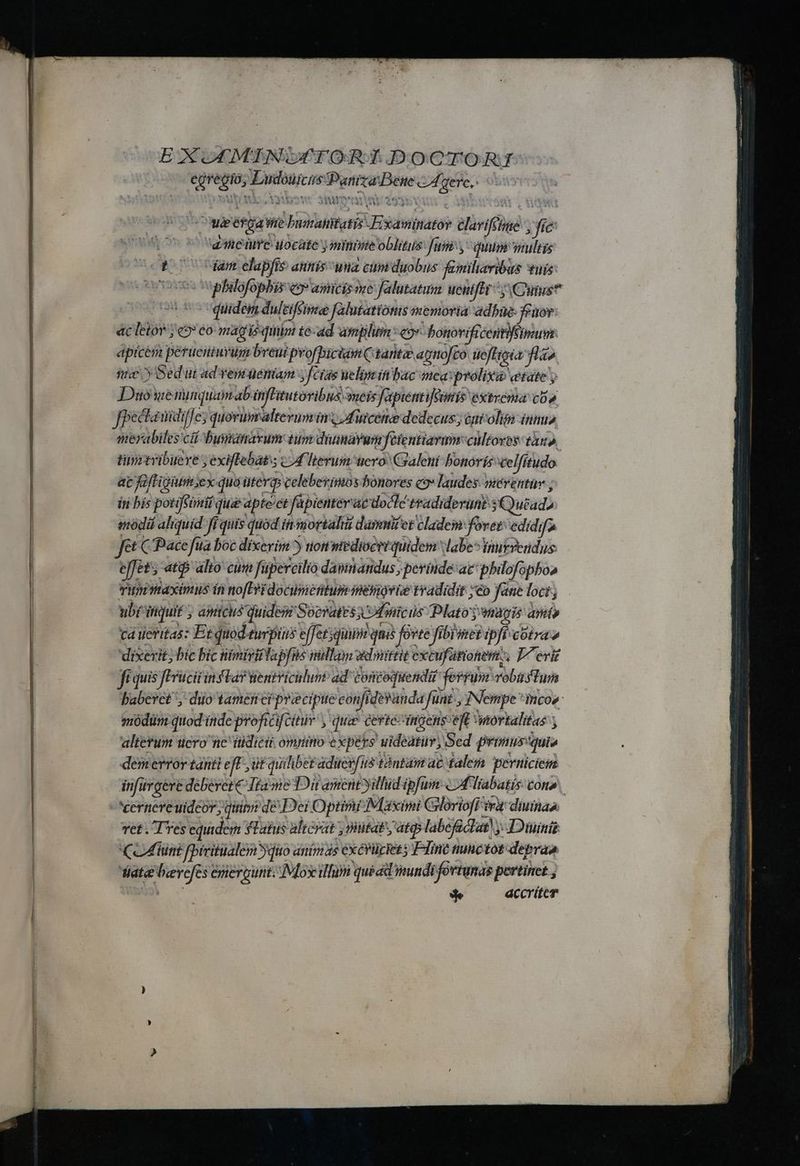 EXAMINATORI DOCTORI
egregio, Ludouicus Paniza Bene Agere.
uæ erga me humanitatis Examinator clarissime, sic
a me iure uocate, minime oblitus sum, quum multis
t iam elapsis annis una cum duobus familiaribus tuis
philosophis & amicis me salutatum uenisti, Cuius
quidem dulcissimæ salutationis memoria adhuc fruor
ac letor, & eo magis quum te ad amplum & honorificentissimum
apicem peruenturum breui prospiciam (tantæ agnosco uestigia flā
mæ) Sed ut ad rem ueniam, scias uelim in hac mea prolixa ætate,
Duo me nunquam ab institutoribus meis sapientissimis extrema cō
specta uidisse, quorum alterum in Auicenæ dedecus, cui olim innu
merabiles cū humanarum tum diuinarum scientiarum cultores tantū
tum tribuere, existebat, Alterum uero Galeni honoris celsitudo
ac fastigium, ex quo uterq celeberrimos honores & laudes merentur,
in his potissimū quæ apte et sapienter ac docte tradiderunt, Quēad
modū aliquid si quis quod in mortaliū damnū et cladem foret edidis
set (Pace sua hoc dixerim) non mediocri quidem labe inurendus
esset, atq alto cum supercilio damnandus, perinde ac philosopho
rum maximus in nostri documentum memoriæ tradidit, eo sane loci,
ubi inquit, amicus quidem Socrates, Amicus Plato, magis ami
ca ueritas: Et quod turpius esset, quum quis forte sibimet ipsi cōtra
dixerit, hic hic nimirū lapsus nullam admittit excusationem, Verū
si quis strucii instar uentriculum ad concoquendū ferrum robustum
haberet, duo tamen ei præcipue consideranda sunt, Nempe inco
modum quod inde proficiscitur, quæ certe ingens est mortalitas,
alterum uero ne iudicii omnino expers uideatur, Sed primus qui
dem error tanti est, ut quilibet aduersus tantam ac talem perniciem
insurgere deberet (Ita me Dii ament) illud ipsum Aliabatis con
cernere uideor, quum de Dei Optimi Maximi Gloriosi ira diuina
ret. Tres equidem status alterat, mutat, atq labefactat, Diuinū
(Aiunt spiritualem) quo animas excruciet, Hinc nunc tot depra
uatæ hæreses emergunt. Mox illum qui ad mundi fortunas pertinet,
accriter